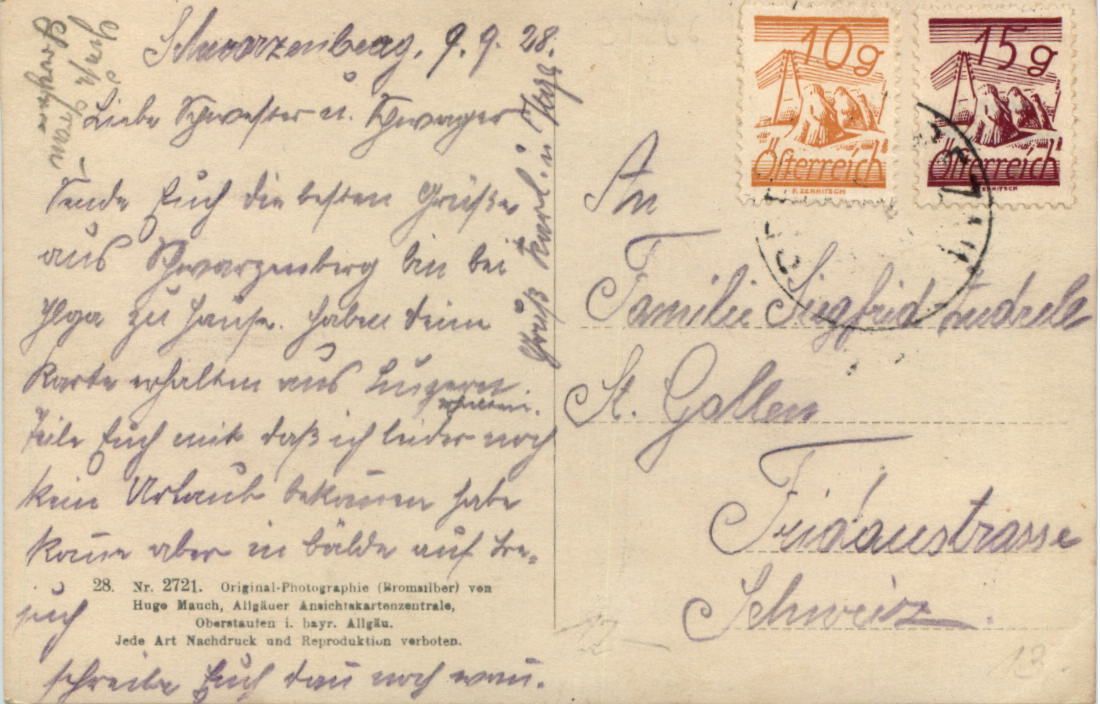 Schwarzenberg, 9.9.28.
Liebe Schwester u. Schwager
Sende Euch die besten Grüße
aus Schwarzenberg bin bei
Ilga zu Hause. Haben deine
Karte erhalten aus Luzern.
Teile Euch mit daß ich leider noch
kein Urlaub bekomen habe
kome aber in bälde auf Be-
such
schreibe Euch dan noch wan.
Gruß Karl u. Ilga
10g
Österreich
F. ZERRITSCH
15g
Österreich
ZERRITSCH
An
Familie Siegfrid
St. Gallen
Fridaustrasse
Schweiz.
28. Nr. 2721. Original-Photographie (Bromsilber) von
Hugo Mauch, Allgäuer Ansichtskartenzentrale,
Oberstaufen i. bayr. Allgäu.
Jede Art Nachdruck und Reproduktion verboten.
12
13.